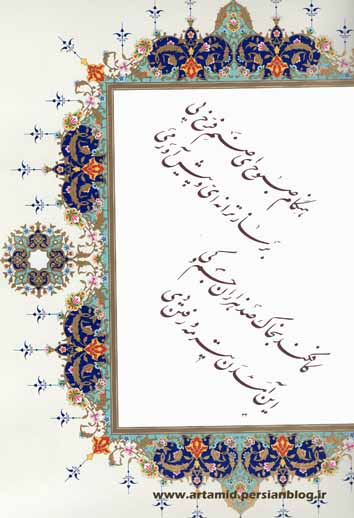 هنگام صبوح ای صنم فرخ پی
برساز ترانه‌ای و پیش آور می
کافکند بخاک صد هزاران جم و کی
این آمدن تیر مه و رفتن دی
www.artamid.persianblog.ir